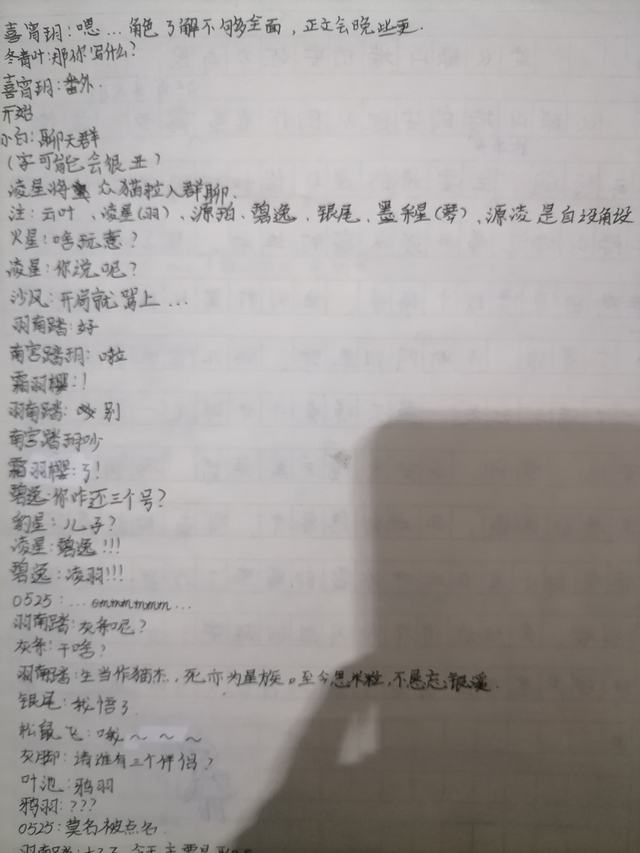 喜宵玥:嗯…角色了解不够全面，正文会晚些更.
冬青叶:那你写什么?
喜宵玥:番外.
开始
小白:聊天群
(字可能也会很丑)
凌星将 众猫拉入群聊.
注:云叶、凌星(羽)、源珀、碧逸、银尾、墨星(琴)，源凌是自设角设
火星:啥玩意?
凌星:你说呢?
沙风:开局就骂上…
羽南踏:好
南宫踏玥:啦
霜羽樱:!
羽南踏: 别
南宫踏玥吵
霜羽樱:了!
碧逸:你咋还三个号?
豹星:儿子?
凌星:碧逸!!!
碧逸:凌羽!!!
0525:…emmmmmm…
羽南踏:灰条呢?
灰条:干啥?
羽南踏:生当作猫杰，死亦为星族。至今思米粒，不忘银溪.
银尾:我悟了.
松鼠飞:哦~ ~ ~
灰脚:请谁有三个伴侣?
叶池:鸦羽
鸦羽:???
0525:莫名被点名.
羽南踏: